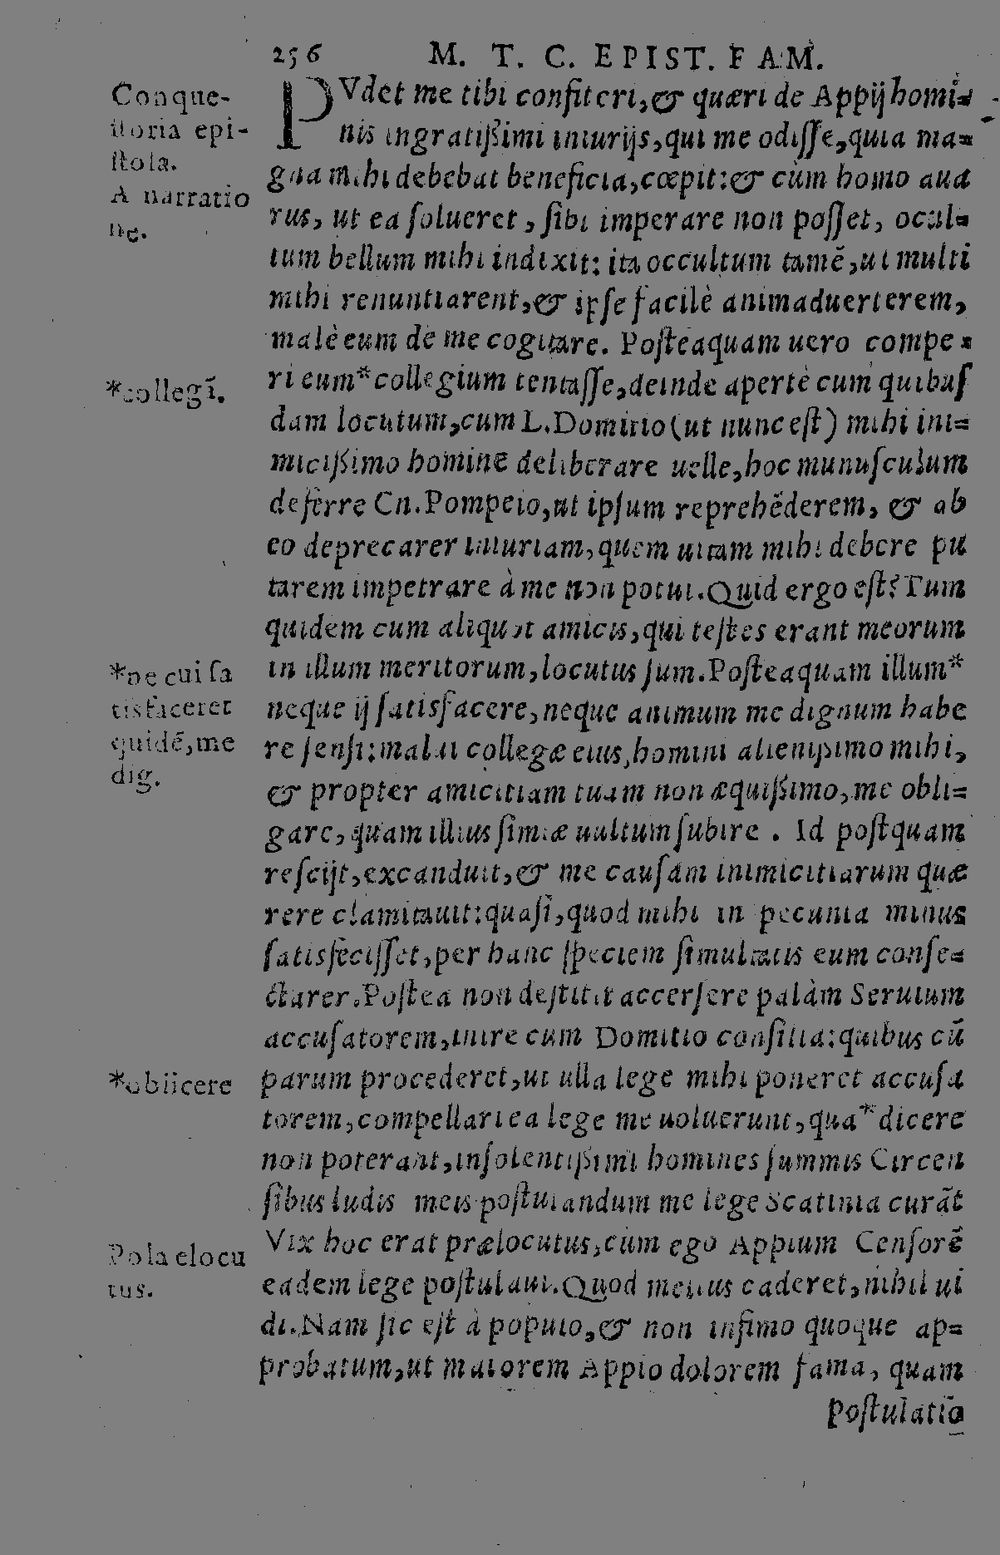 256 M. T. C. EPIST. FAM.
Conque-
storia epi-
stola.
A narratio
ne.
PVdet me tibi confiteri, & quæri de Appij homi=
nis ingratißimi iniurijs, qui me odiſſe, quia ma=
gna mihi debebat beneficia, cœpit: & cùm homo aua
rus, ut ea ſolueret, ſibi imperare non poſſet, ocul=
tum bellum mihi indixit: ita occultum tamē, ut multi
mihi renuntiarent, & ipſe facilè animaduerterem,
malè eum de me cogitare. Poſteaquam uero compe=
*collegī.
ri eum* collegium tentaſſe, deinde apertè cum quibuſ
dam locutum, cum L. Domitio (ut nunc eſt) mihi ini=
micißimo homine deliberare uelle, hoc munuſculum
deferre Cn. Pompeio, ut ipſum reprehēderem, & ab
eo deprecarer iniuriam, quem uitam mihi debere pu
tarem impetrare à me non potui. Quid ergo eſt? Tum
quidem cum aliquot amicis, qui teſtes erant meorum
*ne cui ſa
tisfaceret
quidē, me
dig.
in illum meritorum, locutus ſum. Poſteaquam illum*
neque ij ſatisfacere, neque animum me dignum habe
re ſenſi: malui collegæ eius, homini alienißimo mihi,
& propter amicitiam tuam non æquißimo, me obli=
gare, quam illius ſimiæ uultum ſubire. Id poſtquam
reſcijt, excanduit, & me cauſam inimicitiarum quæ
rere clamitauit: quaſi, quod mihi in pecunia minus
ſatisfeciſſet, per hanc ſpeciem ſimultatis eum conſe=
ctarer. Poſtea non deſtitit accerſere palàm Seruium
accuſatorem, inire cum Domitio conſilia: quibus cū
*obiicere
parum procederet, ut ulla lege mihi poneret accuſa
torem, compellari ea lege me uoluerunt, qua* dicere
non poterant, inſolentißimi homines ſummis Circen
ſibus ludis meis poſtulandum me lege Scatinia curāt
Pola elocu
tus.
Vix hoc erat prælocutus, cum ego Appium Cenſorē
eadem lege poſtulaui. Quod melius caderet, nihil ui
di. Nam ſic eſt à populo, & non infimo quoque ap=
probatum, ut maiorem Appio dolorem fama, quam
poſtulatio